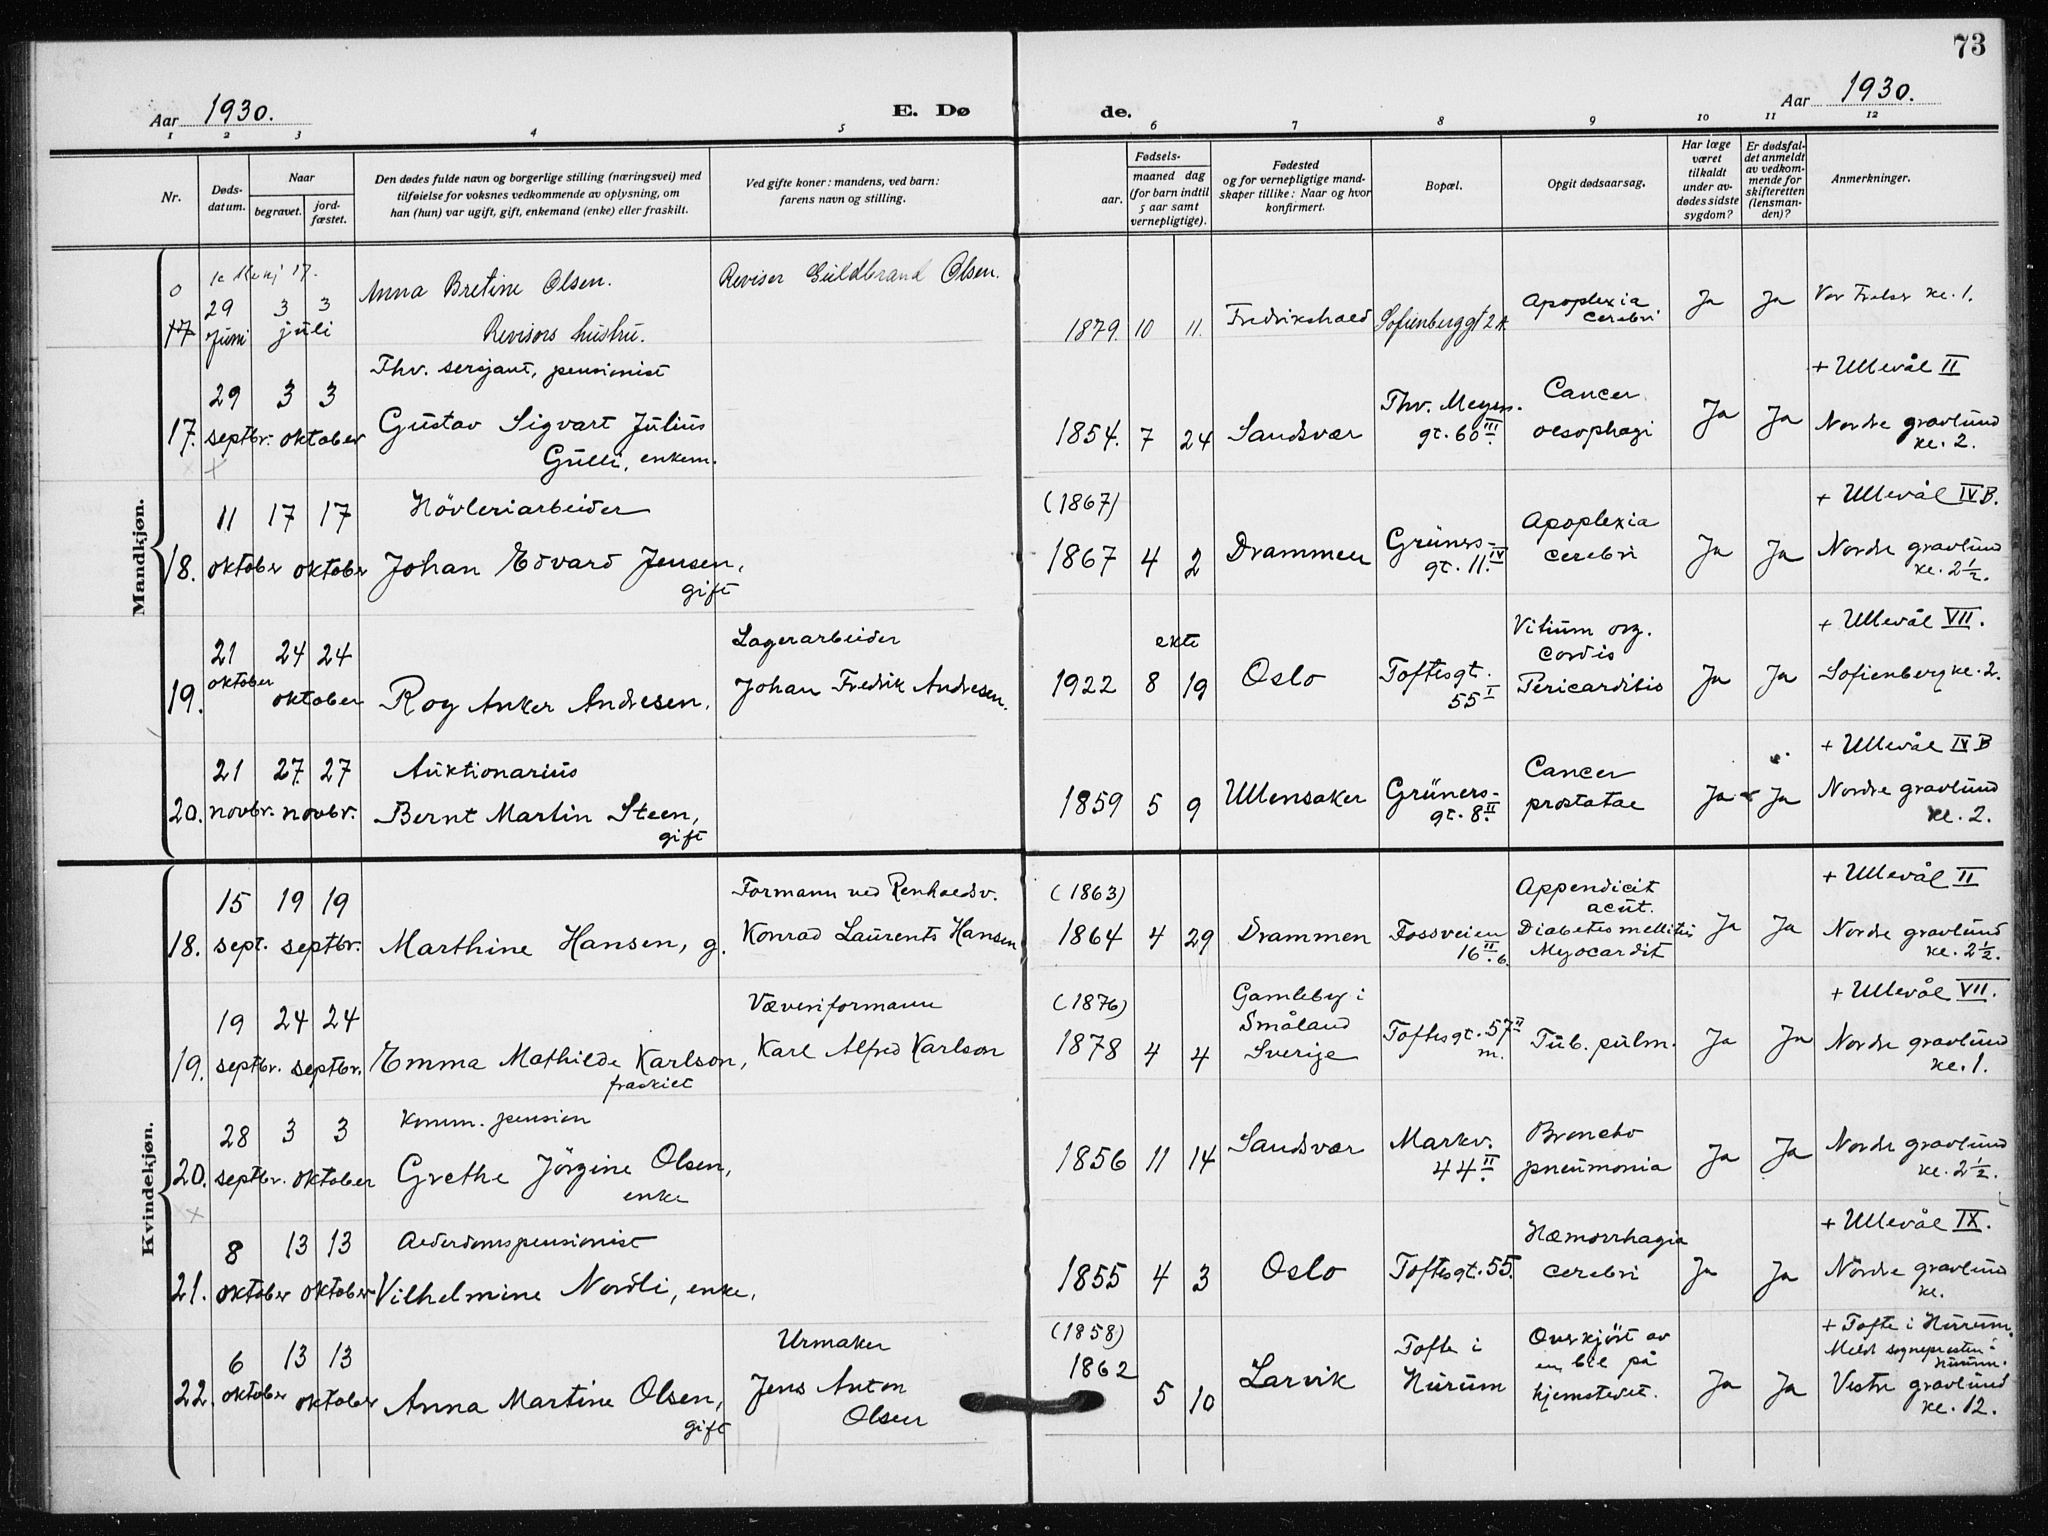 73
Aar 1930.
E. Dø
de.
Aar 1930.
1 2 3 4 5 6 7 8 9 10 11 12
Nr.
Døds-
datum.
Naar
begravet.
jord-
fæstet.
Den dødes fulde navn og borgerlige stilling (næringsvei) med
tilføielse for voksnes vedkommende av oplysning, om
han (hun) var ugift, gift, enkemand (enke) eller fraskilt.
Ved gifte koner: mandens, ved barn:
farens navn og stilling.
Fødsels-
aar.
maaned dag
(for barn indtil
5 aar samt
vernepligtige).
Fødested
og for vernepligtige mand-
skaper tillike: Naar og hvor
konfirmert.
Bopæl.
Opgit dødsaarsag.
Har læge
været
tilkaldt
under av-
dødes sidste
sygdom?
Er dødsfal-
det anmeldt
av vedkom-
mende for
skifteretten
(lensman-
den)?
Anmerkninger.
Mandkjøn.
17
29 3 3
Juni juli
Anna Bretine Olsen.
Revisors hustru.
Revisor Guldbrand Olsen.
1879. 10 11.
Fredrikshald
Sofienberggt 2 A.
Apoplexia
cerebri
Ja Ja
Vor Frelser kl. 1.
17.
29 3 3
septbr. oktober
Fhv. sersjant, pensionist
Gustav Sigvart Julius
Gulli, enkem.
1854. 7 24
Sandsvær
Thv. Meyers-
gt. 60 III
Cancer
oesophagi
Ja Ja
+ Ullevål II
Nordre gravlund
kl. 2.
18.
11 17 17
oktober oktober
Høvleriarbeider
Johan Edvard Jensen,
gift
(1867)
1867 4 2
Drammen
Grüners-
gt. 11. IV
Apoplexia
cerebri
Ja Ja
+ Ullevål IV B.
Nordre gravlund
kl. 2½.
19.
21 24 24
oktober oktober
Roy Anker Andresen.
Lagerarbeider
Johan Fredrik Andresen.
ekte
1922 8 19
Oslo
Toftesgt.
55 I
Vitium org.
cordis
Pericarditis
Ja Ja
+ Ullevål VII.
Sofienberg kl. 2.
20.
21 27 27
novbr. novbr.
Auktionarius
Bernt Martin Steen,
gift
1859 5 9
Ullensaker
Grüners-
gt. 8. II
Cancer
prostatae
Ja Ja
+ Ullevål IV B
Nordre gravlund
kl. 2.
Kvindekjøn.
18.
15 19 19
sept. septbr.
Marthine Hansen, g.
Formann ved Renholdsv.
Konrad Laurents Hansen
(1863)
1864 4 29
Drammen
Fossveien
16 II b.
Appendicit
acut.
Diabetes mellitus
Myocardit
Ja Ja
+ Ullevål II
Nordre gravlund
kl. 2½.
19.
19 24 24
septbr. septbr.
Emma Mathilde Karlson,
fraskilt
Væveriformann
Karl Alfred Karlson
(1876)
1878 4 4
Gamleby i
Småland
Sverige
Toftesgt. 57 II
m.
Tub. pulm.
Ja Ja
+ Ullevål VII.
Nordre gravlund
kl. 1.
20.
28 3 3
septbr. oktober
Komm. pension
Grethe Jörgine Olsen,
enke
1856 11 14
Sandsvær
Markv.
44 II
Broncho
pneumonia
Ja Ja
Nordre gravlund
kl. 2½.
21.
8 13 13
oktober oktober
Alderdomspensionist
Vilhelmine Nordli, enke,
1855 4 3
Oslo
Toftesgt. 55.
Hæmorrhagia
cerebri
Ja Ja
+ Ullevål IX.
Nordre gravlund
kl.
22.
6 13 13
oktober oktober
Anna Martine Olsen,
gift
Urmaker
Jens Anton
Olsen
(1858)
1862 5 10
Larvik
Tofte i
Hurum
Overkjört av
en bil på
hjemstedet.
Ja Ja
+ Tofte i Hurum.
Meldt sognepresten i
Hurum.
Vestre gravlund
kl. 12.